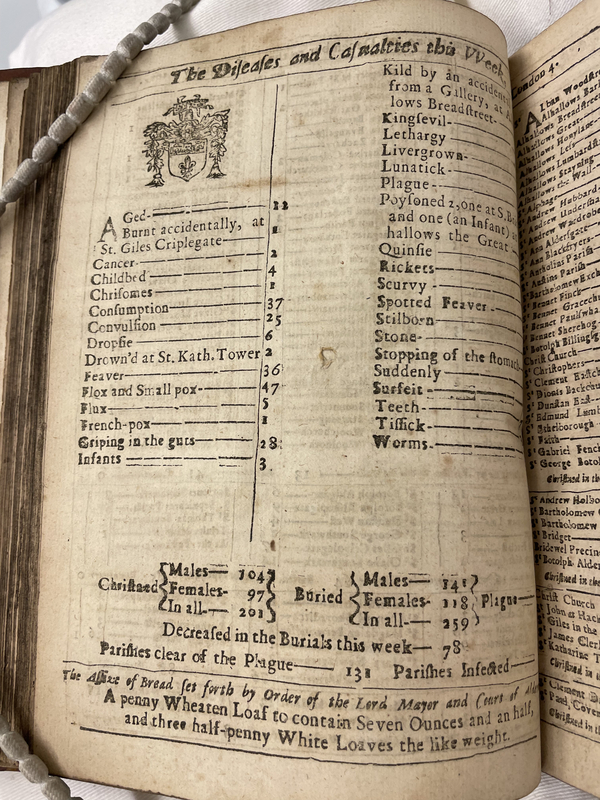 The Diſeaſes and Caſualties this Week
AGed 12
Burnt accidentally, at
St. Giles Criplegate 1
Cancer 2
Childbed 4
Chriſomes 1
Conſumption 37
Convulſion 25
Dropſie 6
Drown'd at St. Kath. Tower 2
Feaver 36
Flox and Small pox 47
Flux 5
French-pox 1
Griping in the guts 28
Infants 3
Kild by an accident
from a Gallery, at
lows Breadſtreet
Kingſevil
Lethargy
Livergrown
Lunatick
Plague
Poyſoned 2, one at S.
and one (an Infant)
hallows the Great
Quinſie
Rickets
Scurvy
Spotted Feaver
Stilborn
Stone
Stopping of the ſtomach
Suddenly
Surfeit
Teeth
Tiſſick
Worms
Chriſtned
Males 104
Females 97
In all 201
Buried
Males 141
Females 118
In all 259
Plague
Decreaſed in the Burials this week 78
Pariſhes clear of the Plague 131 Pariſhes Infected
The Aſſize of Bread ſet forth by Order of the Lord Mayor and Court of
A penny Wheaten Loaf to contain Seven Ounces and an half,
and three half-penny White Loaves the like weight.
London 4.
Alban Woodſtr
Alhallows Bark
Alhallows Breadſtreet
Alhallows Great
Alhallows Honylane
Alhallows Leſs
Alhallows Lumbardſt
Alhallows Staining
Alhallows the Wall
Andrew Hubbard
Andrew Underſha
Andrew Wardrobe
Ann Alderſgate
Ann Blackfryers
Antholins Pariſh
Auſtins Pariſh
Bartholomew Exch
Bennet Finck
Bennet Gracech
Bennet Paulſwha
Bennet Sherehog
Botolph Billingſg
Chriſt Church
St Chriſtophers
St Clement Eaſtch
St Dionis Backchu
St Dunſtan Eaſt
St Edmund Lumb
St Ethelborough
St Faith
St Gabriel Fench
St George Botol
Chriſtned in the
St Andrew Holbo
St Bartholomew
St Bartholomew
St Bridget
Bridewel Precin
St Botolph Alder
Chriſtned in the
Chriſt Church
St John at Hack
St Giles in the
St James Clerk
St Katharine T
Chriſtned in
St Clement D
St Paul, Coven
Chriſtned in